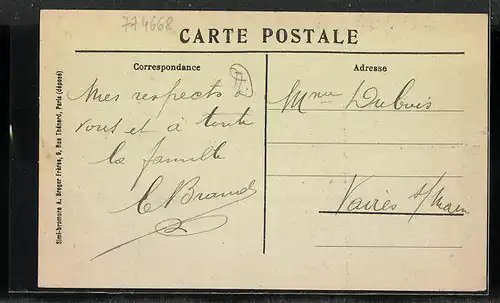 774668
CARTE POSTALE
Correspondance
Adresse
Mes respects à
vous et à toute
la famille
Mme Dubois
Vaires s/
Simi-bromure A. Breger Frères, 9, Rue Thénard, Paris (déposé)